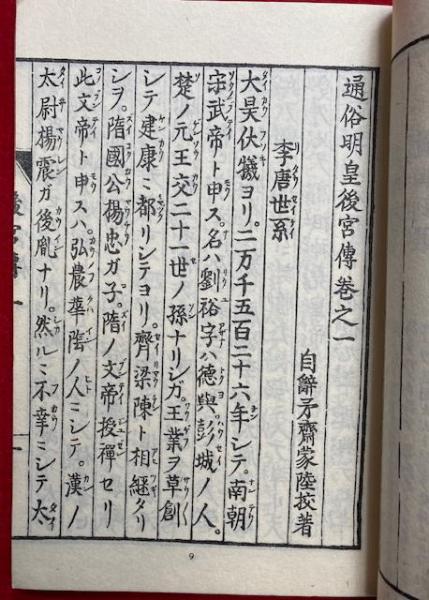 通俗明皇後宮傳卷之一
自辭矛齋蒙陸挍著
李唐世系
大昊伏羲ヨリ。二万千五百二十六年シテ。南朝
宋武帝ト申ス。名ハ劉裕字ハ德輿。彭城ノ人。
楚ノ元王交二十一世ノ孫ナリシガ。王業ヲ草創
シテ建康ニ都リシテヨリ。齊梁陳ト相繼タリ
シヲ。隋國公楊忠ガ子。隋ノ文帝授禪セリ
此文帝ト申スハ。弘農華陰ノ人ニシテ。漢ノ
太尉楊震ガ後胤ナリ。然ルニ不幸ニシテ太
後宮傳 一
9